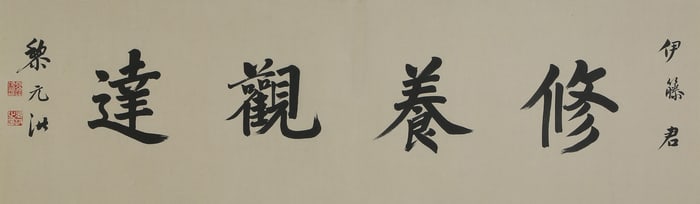 伊籐君
修養觀達
黎元洪